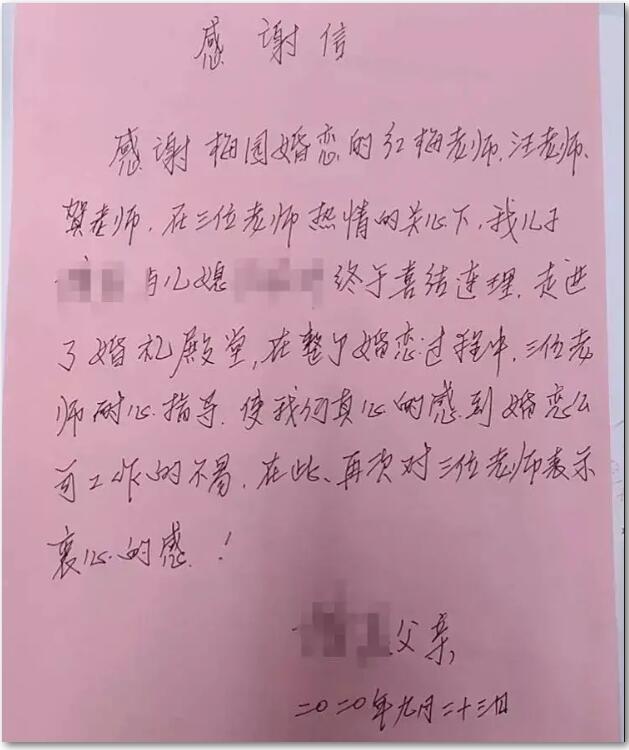 感谢信
感谢梅园婚恋的红梅老师、汪老师、
贺老师，在三位老师热情的关心下，我儿子
与儿媳 终于喜结连理，走进
了婚礼殿堂，在整个婚恋过程中，三位老
师耐心指导，使我们真心的感到婚恋公
司工作的不易，在此、再次对三位老师表示
衷心的感！
父亲
二〇二〇年九月二十三日